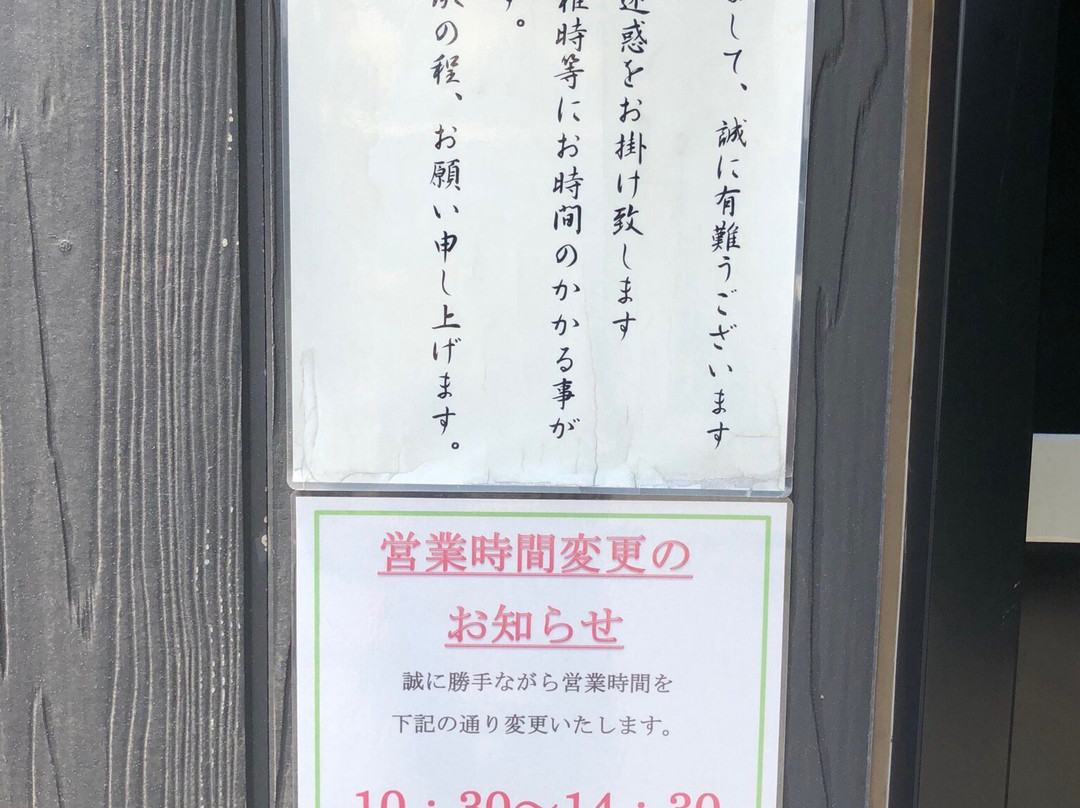 まして、誠に有難うございます
迷惑をお掛け致します
雑時等にお時間のかかる事が
す。
の程、お願い申し上げます。
営業時間変更の
お知らせ
誠に勝手ながら営業時間を
下記の通り変更いたします。
10：30～14：30